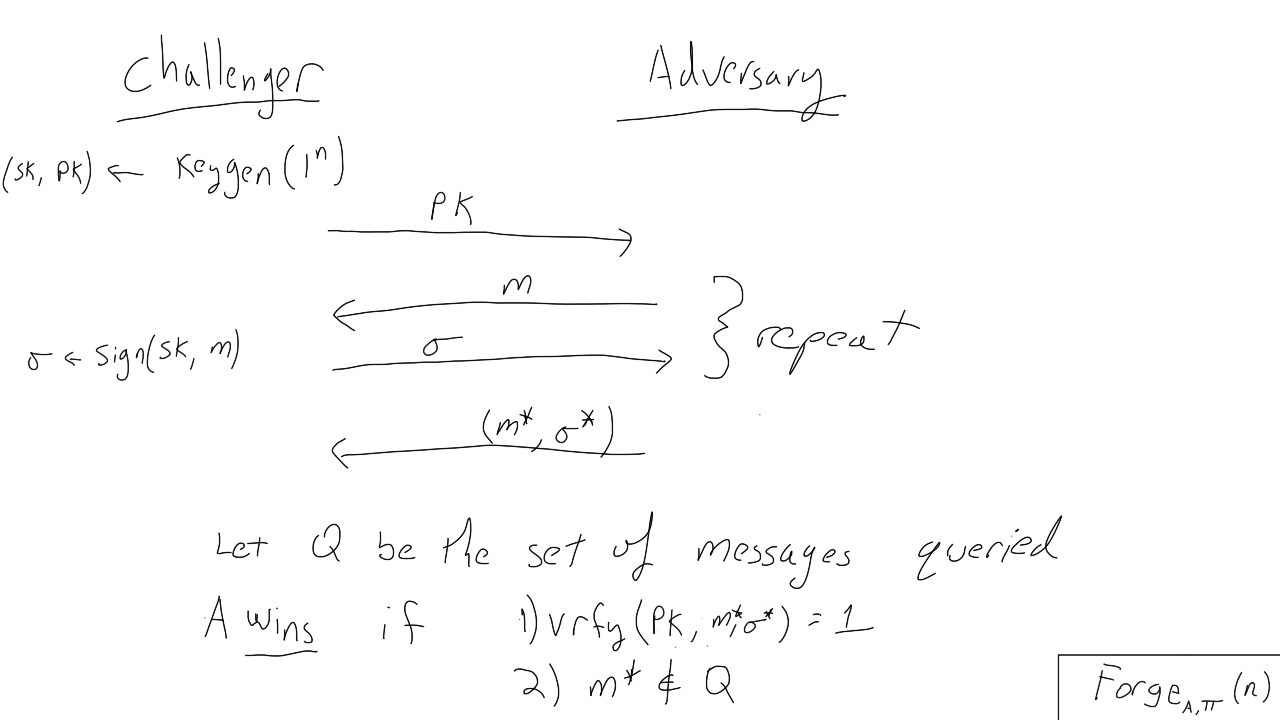 Challenger Adversary
(SK, PK) ← Keygen(1ⁿ)
PK
m
} repeat
σ ← Sign(SK, m) σ
(m*, σ*)
Let Q be the set of messages queried
A wins if 1) Vrfy(PK, m*, σ*) = 1
2) m* ∉ Q
Forge_{A,π}(n)